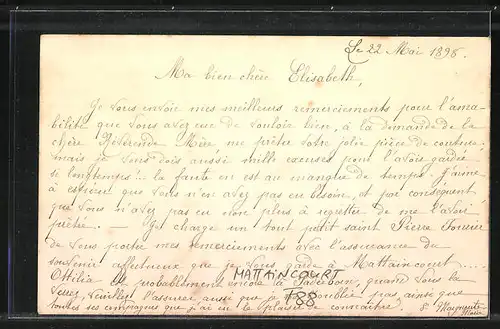 Le 22 Mai 1898.
Ma bien chère Elisabeth,
Je vous envoie mes meilleurs remerciements pour l'ama-
bilité que vous avez eue de vouloir bien, à la demande de la
chère Révérende Mère, me prêter votre jolie pièce de couture
mais je vous dois aussi mille excuses pour l'avoir gardée
si longtemps!... la faute en est au manque de temps. J'aime
à espérer que vous n'en avez pas eu besoin, et par conséquent
que vous n'avez pas eu non plus à regretter de me l'avoir
prêtée. — Je charge un tout petit saint Pierre Fourier
de vous porter mes remerciements avec l'assurance du
souvenir affectueux que je vous garde à Mattaincourt....
MATTAINCOURT
Ottilia est probablement encore à Paderborn, quand vous la
verrez, veuillez l'assurer aussi que je oublie pas, ainsi que
F88
toutes ses compagnes que j'ai eu le plaisir de connaître. S Marguerite
Marie